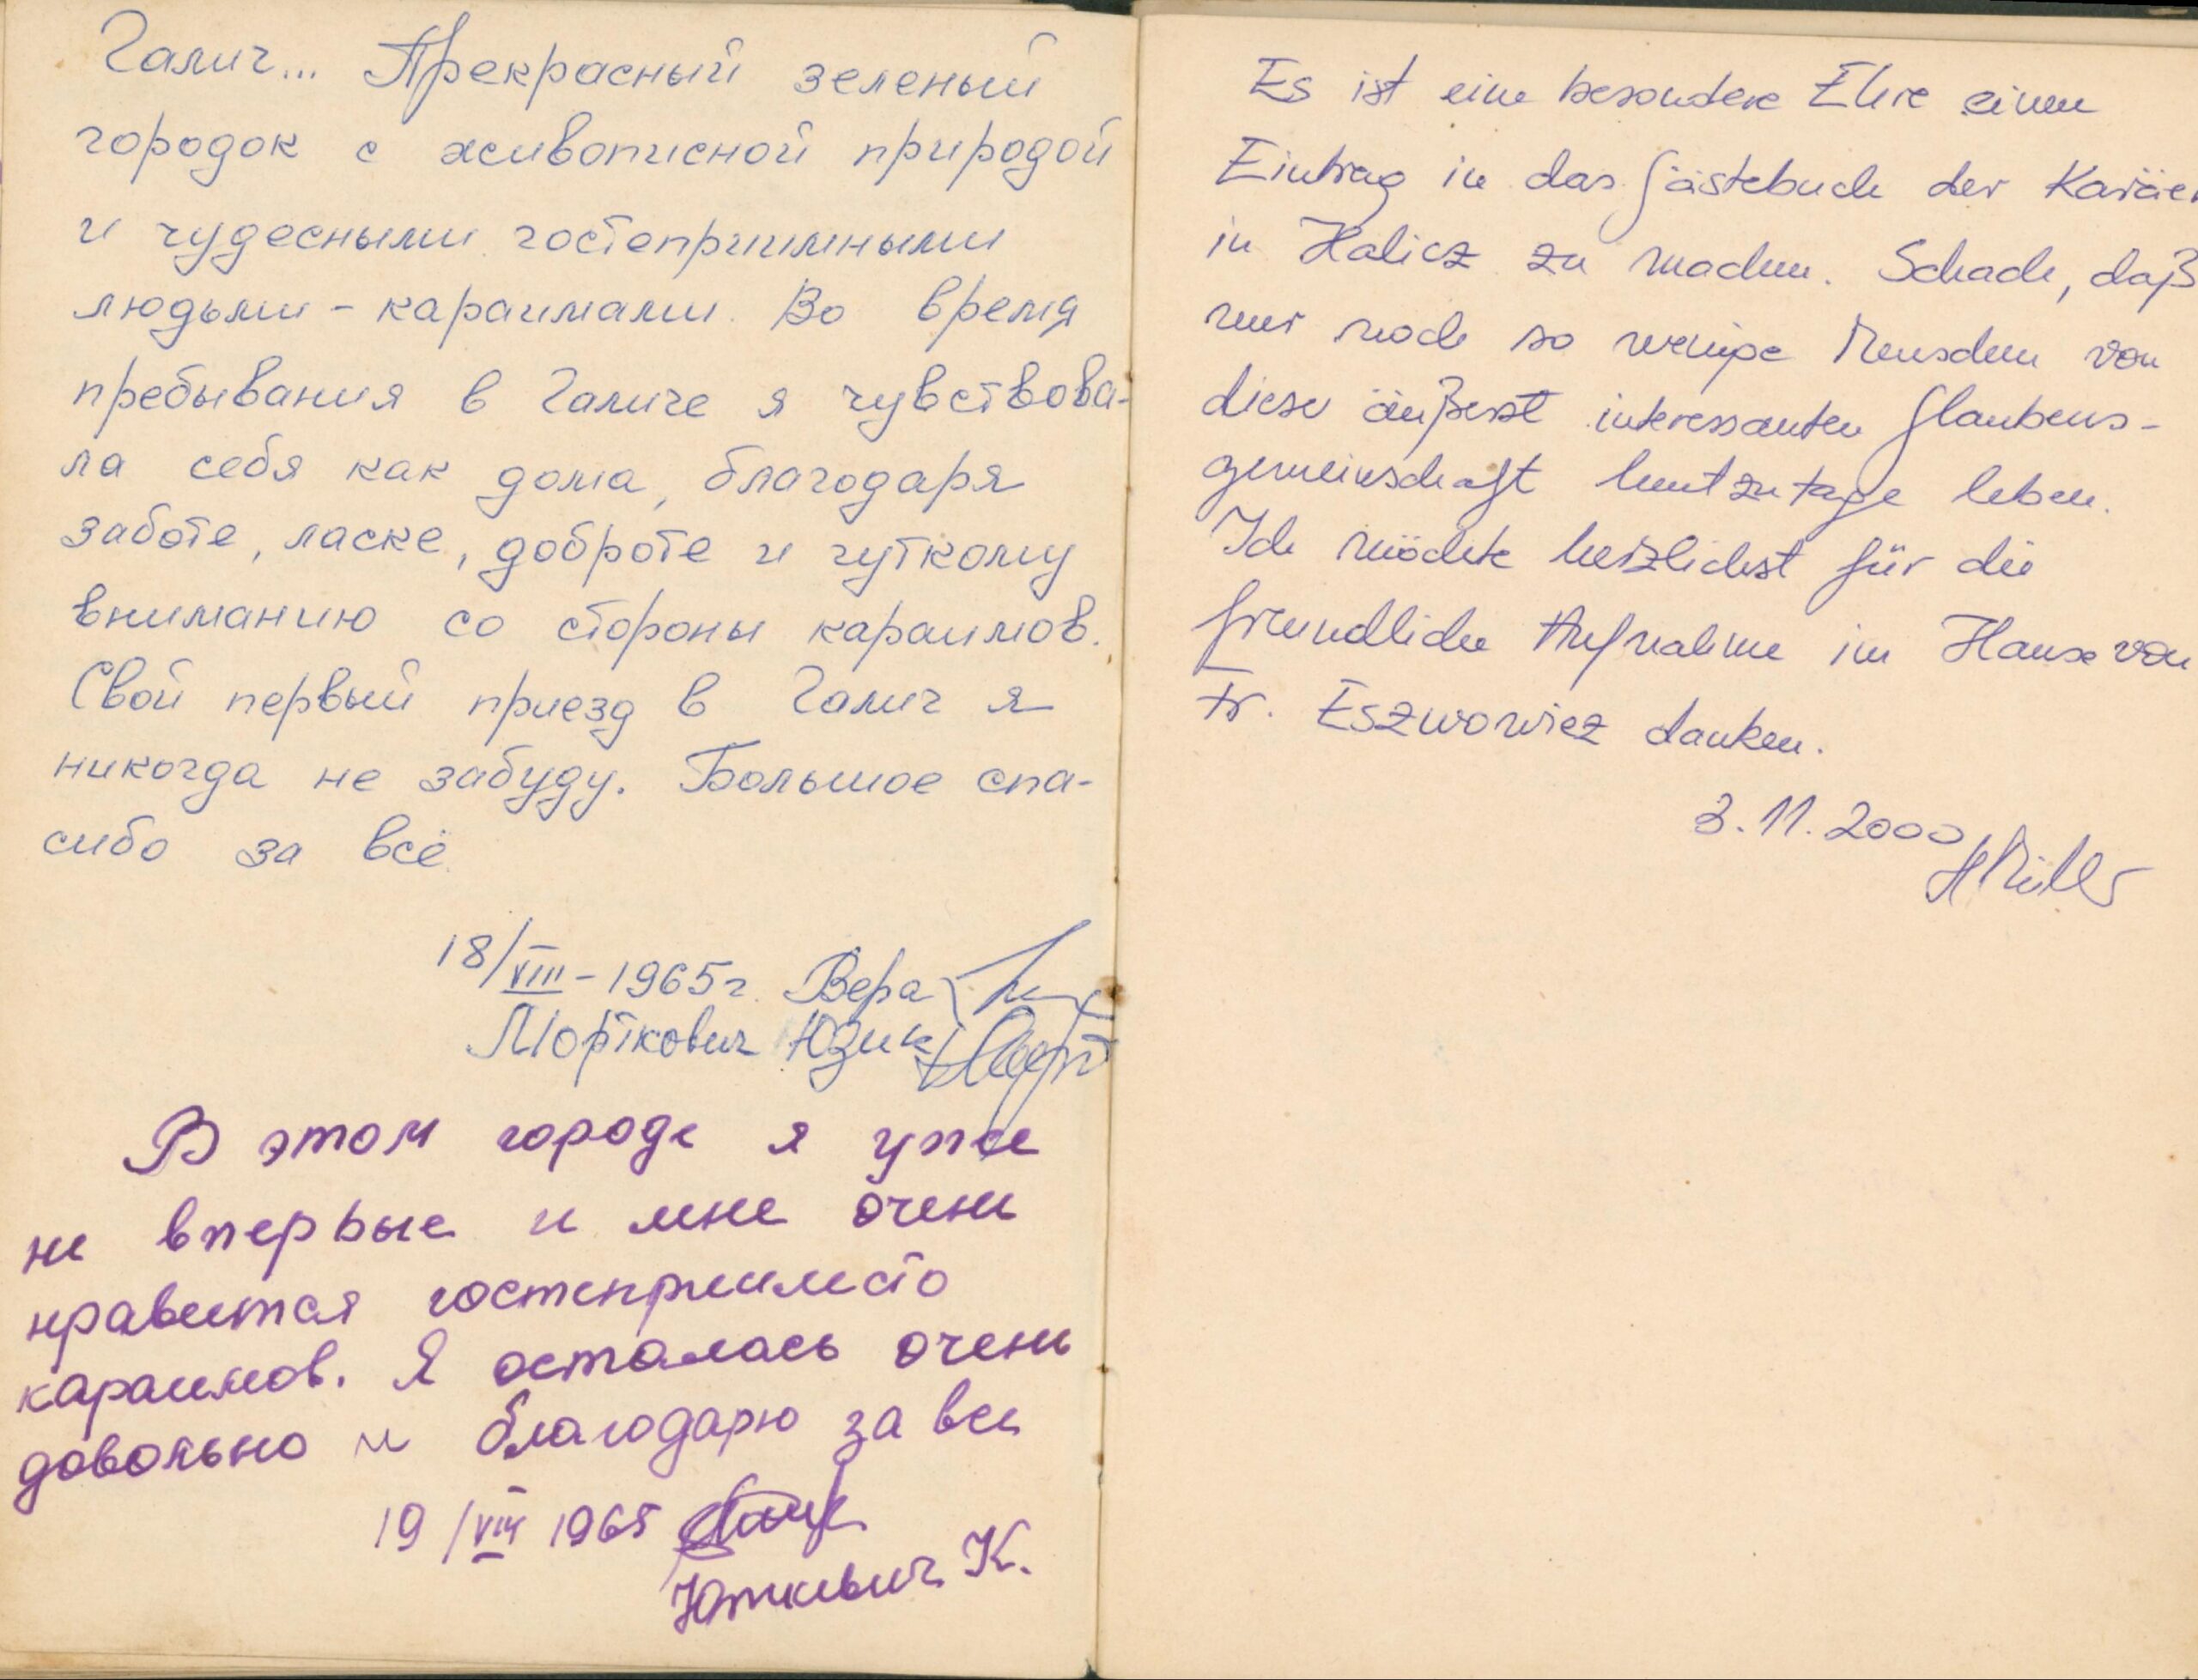 Галич... Прекрасный зеленый
городок с живописной природой
и чудесными гостеприимными
людьми - караимами. Во время
пребывания в Галиче я чувствова-
ла себя как дома, благодаря
заботе, ласке, доброте и чуткому
вниманию со стороны караимов.
Свой первый приезд в Галич я
никогда не забуду. Большое спа-
сибо за всё
18/VIII - 1965 г. Вера
Морткович Юзик
В этом городе я уже
не впервые и мне очень
нравится гостеприимсто
караимов. Я осталась очень
довольно и благодарю за все
19/VIII 1965
Юткевич К.
Es ist eine besondere Ehre einen
Eintrag in das Gästebuch der Karäer
in Halicz zu machen. Schade, daß
nur noch so wenige Menschen von
dieser äußerst interessanten Glaubens-
gemeinschaft heutzutage leben.
Ich möchte herzlichst für die
freundliche Aufnahme im Hause von
Fr. Eszwowicz danken.
3.11.2000